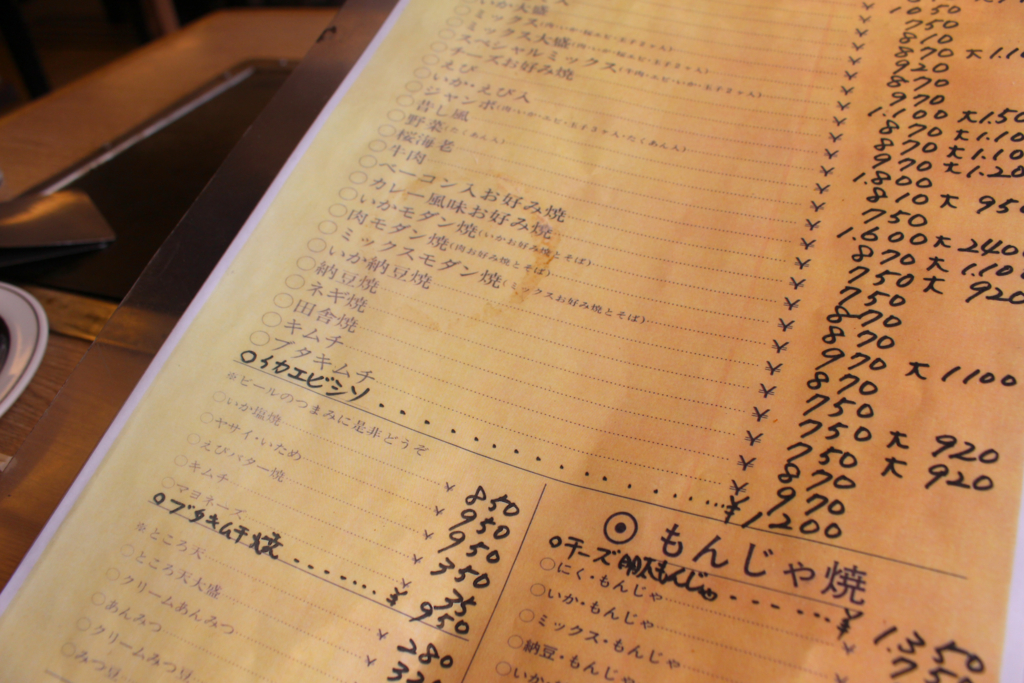 ○いか大盛
○ミックス
○ミックス大盛
○スペシャルミックス
○チーズお好み焼
○えび
○いか・えび入
○ジャンボ(肉・いか・エビ・玉子きゃ入・たくあん入)
○昔し風
○野菜(たくあん入)
○桜海老
○牛肉
○ベーコン入お好み焼
○カレー風味お好み焼
○いかモダン焼(いかお好み焼とそば)
○肉モダン焼(肉お好み焼とそば)
○ミックスモダン焼(ミックスお好み焼とそば)
○いか納豆焼
○納豆焼
○ネギ焼
○田舎焼
○キムチ
○ブタキムチ
○イカエビシソ
1050
750
810
870 大
920
870
970
1.100 大1.50
870 大1.10
870 大1.10
970 大1.20
1.800
810 大 950
750
1.600 大 2400
870 大 1.100
750 大 920
750
870
970 大 1100
870
750
750 大 920
750 大 920
870
970
¥1,200
※ビールのつまみに是非どうぞ
○いか塩焼 850
○ヤサイ・いため 950
○えびバター焼 950
○キムチ 350
○マヨネーズ 35
○ブタキムチ焼 ¥950
※ところ天 280
○ところ天大盛
○クリームあんみつ
○あんみつ
○クリームみつ豆
○みつ豆
◉ もんじゃ焼
○チーズ豚もんじゃ ¥1350
○にく・もんじゃ
○いか・もんじゃ
○ミックス・もんじゃ
○納豆・もんじゃ